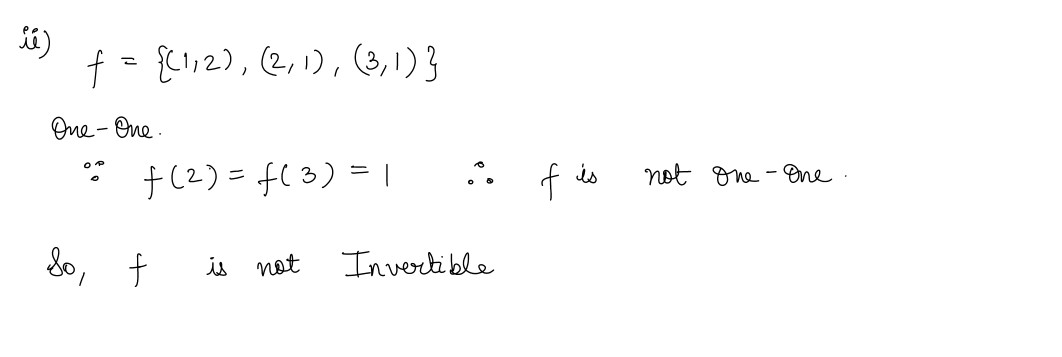 ii) f = {(1,2), (2,1), (3,1)}
One-One.
∵ f(2) = f(3) = 1 ∴ f is not One-One.
So, f is not Invertible